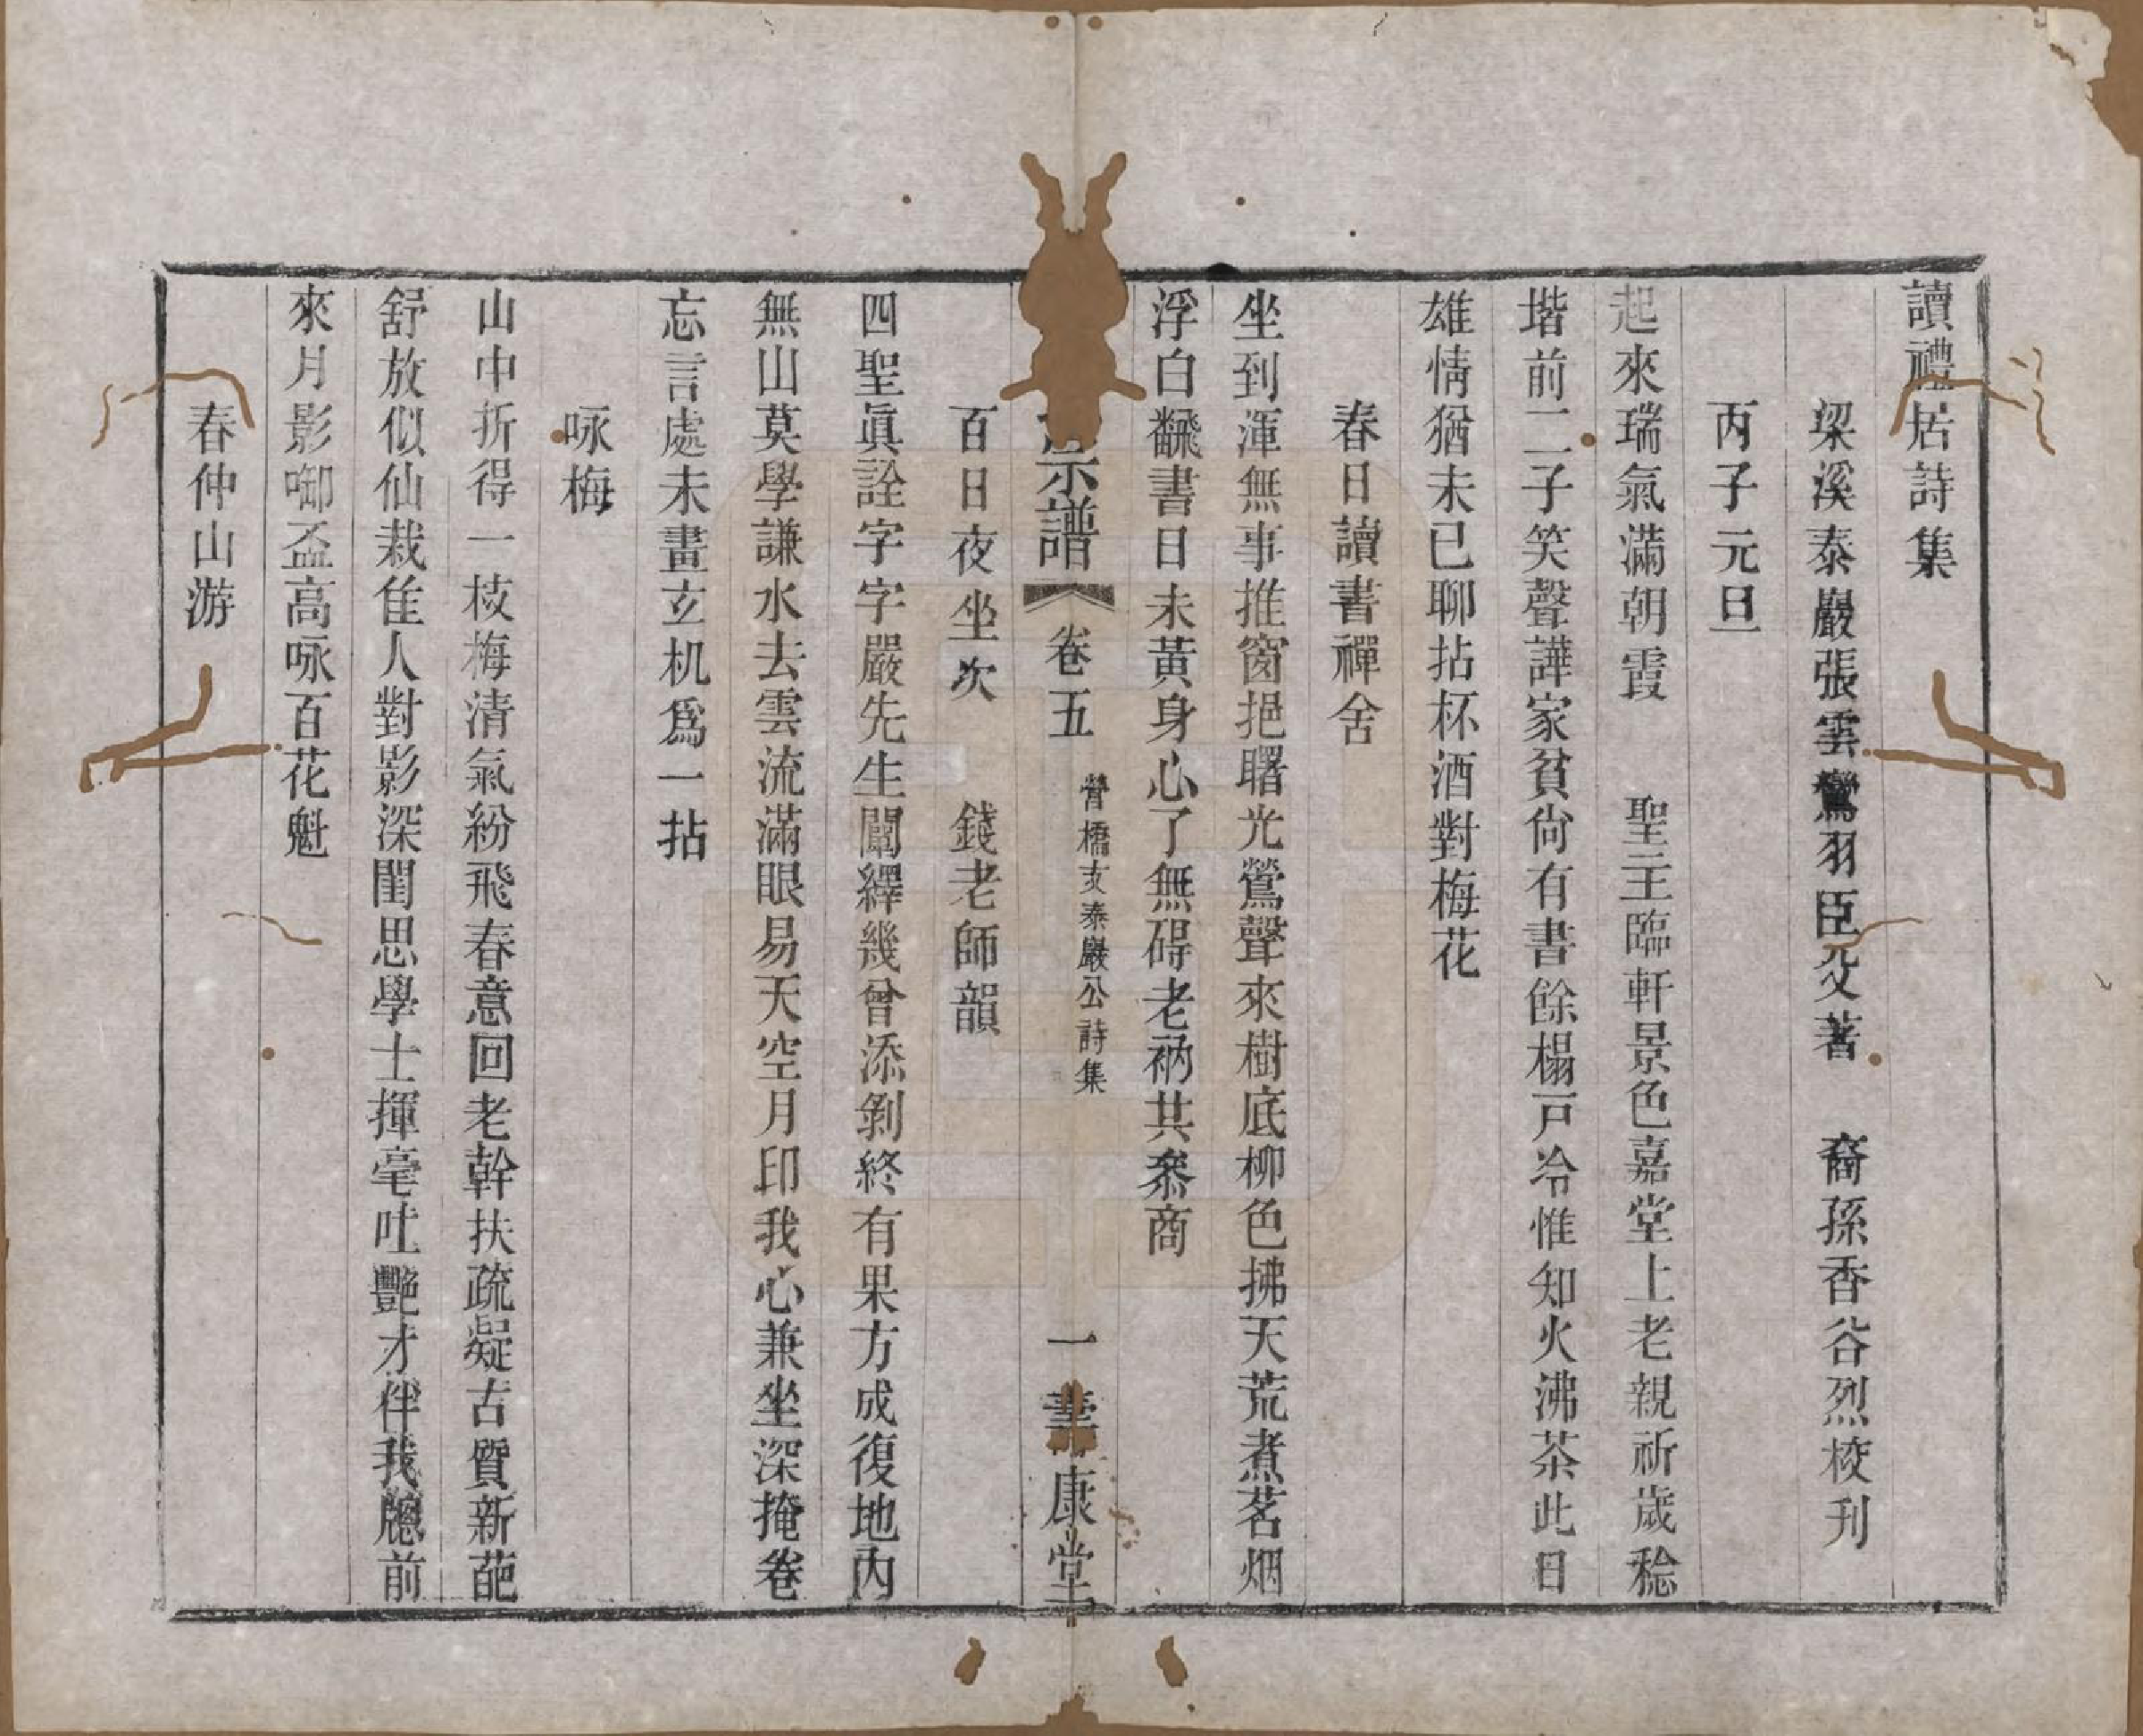 讀禮居詩集
梁溪泰巖張雲鸞羽臣父著 裔孫香谷烈校刊
丙子元旦
起來瑞氣滿朝霞 聖主臨軒景色嘉堂上老親祈歲稔
堦前二子笑聲譁家貧尙有書餘榻戸冷惟知火沸茶此日
雄情猶未已聊拈杯酒對梅花
春日讀書禪舍
坐到渾無事推窗挹曙光鶯聲來樹底柳色拂天荒煮茗烟
浮白飜書日未黃身心了無碍老衲共叅商
宗譜 卷五 營橋支泰巖公詩集 一 康堂
百日夜坐次 錢老師韻
四聖眞詮字字嚴先生闡繹幾曾添剝終有果方成復地內
無山莫學謙水去雲流滿眼易天空月印我心兼坐深掩卷
忘言處未畫玄机爲一拈
咏梅
山中折得一枝梅清氣紛飛春意回老幹扶疏凝古質新葩
舒放似仙栽隹人對影深閨思學士揮毫吐艷才伴我牕前
來月影啣盃高咏百花魁
春仲山游